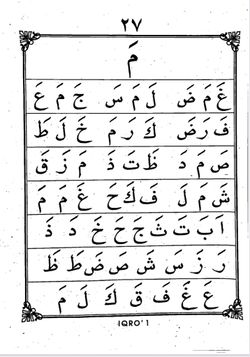 ٢٧
مَ
غَ مَ ضَ لَ مَ سَ جَ مَ عَ
فَ رَ ضَ كَ رَ مَ خَ لَ طَ
صَ مَ دَ ظَ تَ ذَ مَ زَ قَ
شَ مَ لَ فَ كَ حَ غَ مَ مَ
اَ بَ تَ ثَ جَ حَ خَ دَ ذَ
رَ زَ سَ شَ صَ ضَ طَ ظَ
عَ غَ فَ قَ كَ لَ مَ
IQRO' 1